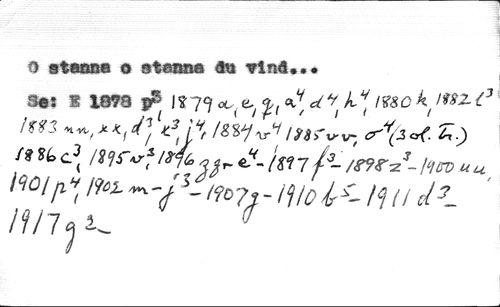 O stanna o stanna du vind...
Se: E 1878 p³ 1879 a, e, q, a⁴, d⁴, h⁴, 1880 k, 1882 t³
1883 nn, xx, d³, x³, j⁴, 1884 v⁴, 1885 vv, o⁴ (3 ol. tr.)
1886 c³, 1895 v³, 1896 zz - e⁴ - 1897 f³ - 1898 z³ - 1900 uu,
1901 p⁴, 1902 m - j³ - 1907 g - 1910 b⁵ - 1911 d³ -
1917 g²-